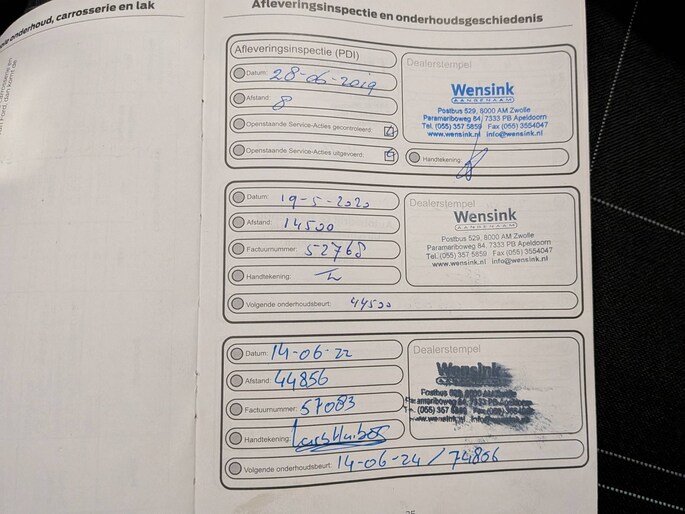 onderhoud, carrosserie en lak
Afleveringsinspectie en onderhoudsgeschiedenis
Afleveringsinspectie (PDI)
Datum: 28-06-2019
Afstand: 8
Openstaande Service-Acties gecontroleerd:
Openstaande Service-Acties uitgevoerd:
Dealerstempel
Wensink
AANGENAAM
Postbus 529, 8000 AM Zwolle
Paramariboweg 64, 7333 PB Apeldoorn
Tel. (055) 357 5859 Fax (055) 3554047
www.wensink.nl info@wensink.nl
Handtekening:
Datum: 19-5-2020
Afstand: 14500
Factuurnummer: 52768
Handtekening:
Volgende onderhoudsbeurt: 44500
Dealerstempel
Wensink
AANGENAAM
Postbus 529, 8000 AM Zwolle
Paramariboweg 64, 7333 PB Apeldoorn
Tel. (055) 357 5859 Fax (055) 3554047
www.wensink.nl info@wensink.nl
Datum: 14-06-22
Afstand: 44856
Factuurnummer: 57083
Handtekening:
Volgende onderhoudsbeurt: 14-06-24 / 74856
Dealerstempel
Wensink
Postbus 529, 8000 AM Zwolle
Paramariboweg 64, 7333 PB Apeldoorn
(055) 357 Fax (055)
www.wensink.nl